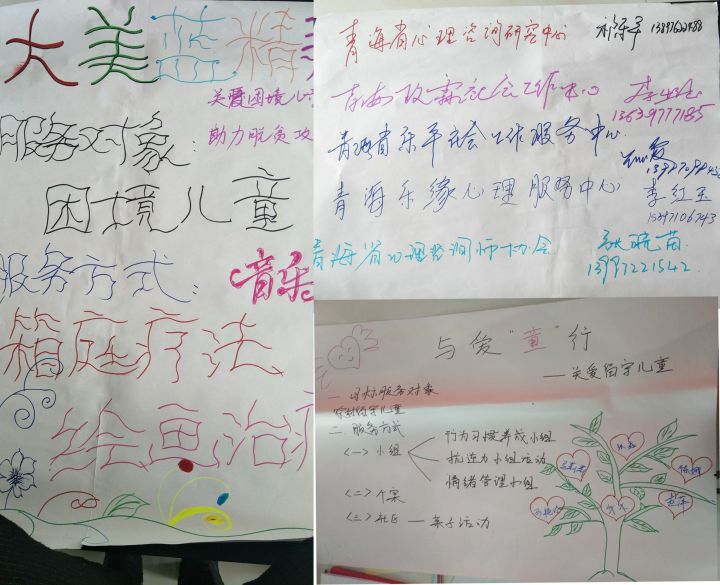 大美蓝精
关爱困境儿
助力脱贫攻
服务对象:
困境儿童
服务方式:
《音乐
箱庭疗法
绘画治疗
青海省心理咨询研究中心
青海政霖社会工作中心
13639777185
青海省乐平社会工作服务中心
青海乐缘心理服务中心 李红玉
15897106743
青海省心理咨询师协会 张晓苗
13997221542
与爱“童”行
——关爱留守儿童
一 目标服务对象
农村留守儿童
二 服务方式
<一> 小组
行为习惯养成小组
抗逆力小组活动
情绪管理小组
<二> 个案
<三> 社区 — 亲子活动